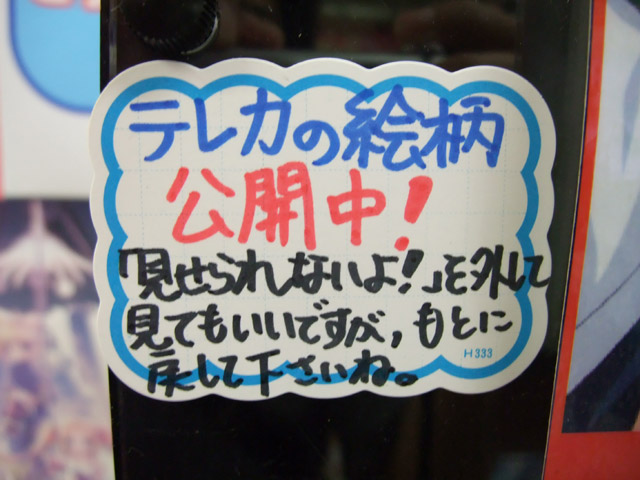 テレカの絵柄
公開中!
「見せられないよ!」を外して
見てもいいですが,もとに
戻して下さいね。
H333